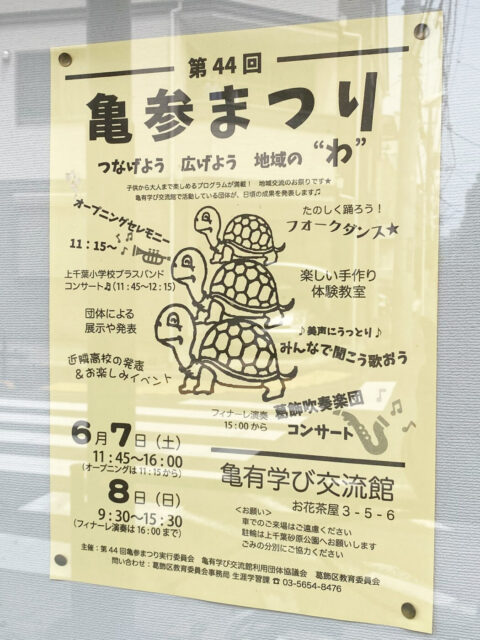 第44回
亀参まつり
つなげよう 広げよう 地域の “わ”
子供から大人まで楽しめるプログラムが満載! 地域交流のお祭りです★
亀有学び交流館で活動している団体が、日頃の成果を発表します♫
オープニングセレモニー
11:15~
上千葉小学校ブラスバンド
コンサート♫(11:45~12:15)
団体による
展示や発表
近隣高校の発表
&お楽しみイベント
たのしく踊ろう!
フォークダンス★
楽しい手作り
体験教室
♪美声にうっとり♪
みんなで聞こう歌おう
フィナーレ演奏
15:00から
葛飾吹奏楽団
コンサート
6月7日(土)
11:45~16:00
(オープニングは11:15から)
8日(日)
9:30~15:30
(フィナーレ演奏は16:00まで)
亀有学び交流館
お花茶屋3-5-6
<お願い>
車でのご来場はご遠慮ください
駐輪は上千葉砂原公園へお願いします
ごみの分別にご協力ください
主催:第44回亀参まつり実行委員会 亀有学び交流館利用団体協議会 葛飾区教育委員会
問い合わせ:葛飾区教育委員会事務局 生涯学習課 ☎ 03-5654-8476